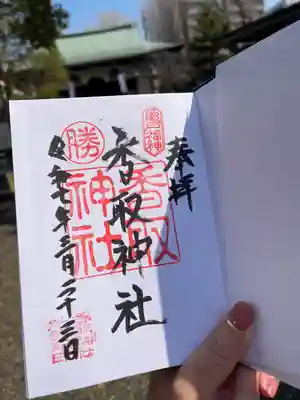 奉拝
亀戸神
香取神社
香取
神社
勝
令和七年三月二十三日